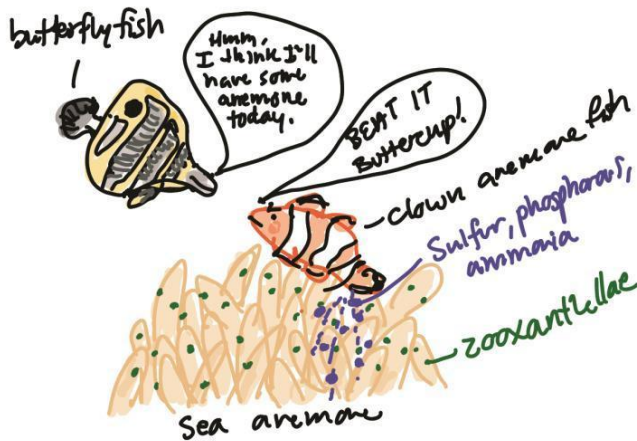 butterflyfish
Hmm,
I think I'll
have some
anemone
today.
BEAT IT
Buttercup!
clown anemone fish
Sulfur, phosphorus,
ammonia
zooxanthellae
sea anemone